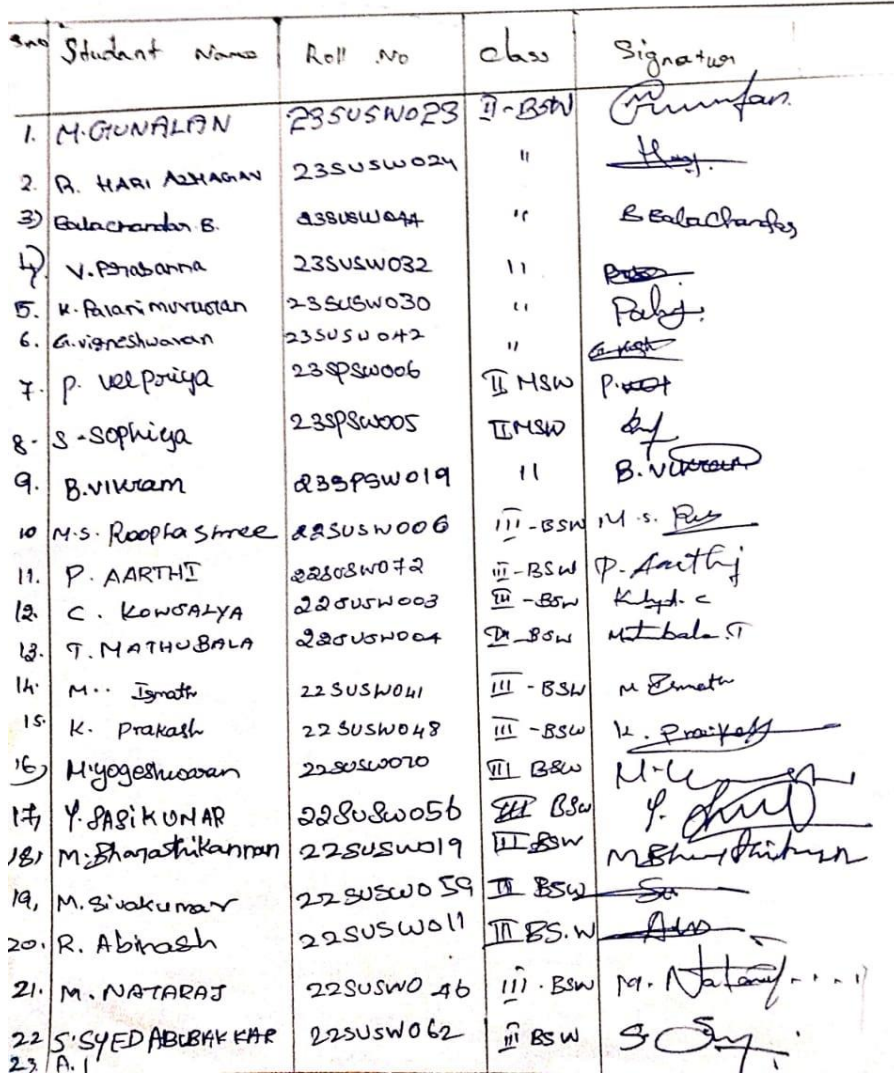 S.no Student Name Roll .No class Signature
1. M.GUNALAN 23SUSW023 II-BSW
2. R. HARI AZHAGAN 23SUSW024 "
3) Balachandar B. 23SUSW044 " B Balachandar
4) V. Prasanna 23SUSW032 "
5. K. Palanimurugan 23SUSW030 "
6. G. vigneshwaran 23SUSW042 "
7. P. Velpriya 23SPSW006 II MSW
8. S. Sophiya 23SPSW005 II MSW
9. B. vikram 23SPSW019 " B. Vikram
10 M.S. Roopha Shree 22SUSW006 III-BSW M.S.
11. P. AARTHI 22SUSW072 III-BSW P. Aarthi
12. C. KOWSALYA 22SUSW003 III-BSW
13. T. MATHUBALA 22SUSW004 III-BSW Mathubala.T
14. M.. Ismath 22SUSW041 III-BSW M Ismath
15. K. Prakash 22SUSW048 III-BSW K. Prakash
16) M.yogeshwaran 22SUSW070 III BSW
17, Y. SASIKUMAR 22SUSW056 III BSW
18, M. Bharathikannan 22SUSW019 III BSW
19, M. Sivakumar 22SUSW059 III BSW
20. R. Abinash 22SUSW011 III BS.W
21. M. NATARAJ 22SUSW046 III.BSW M. Nataraj
22 S.SYED ABUBAKKAR 22SUSW062 III BSW
23. A.